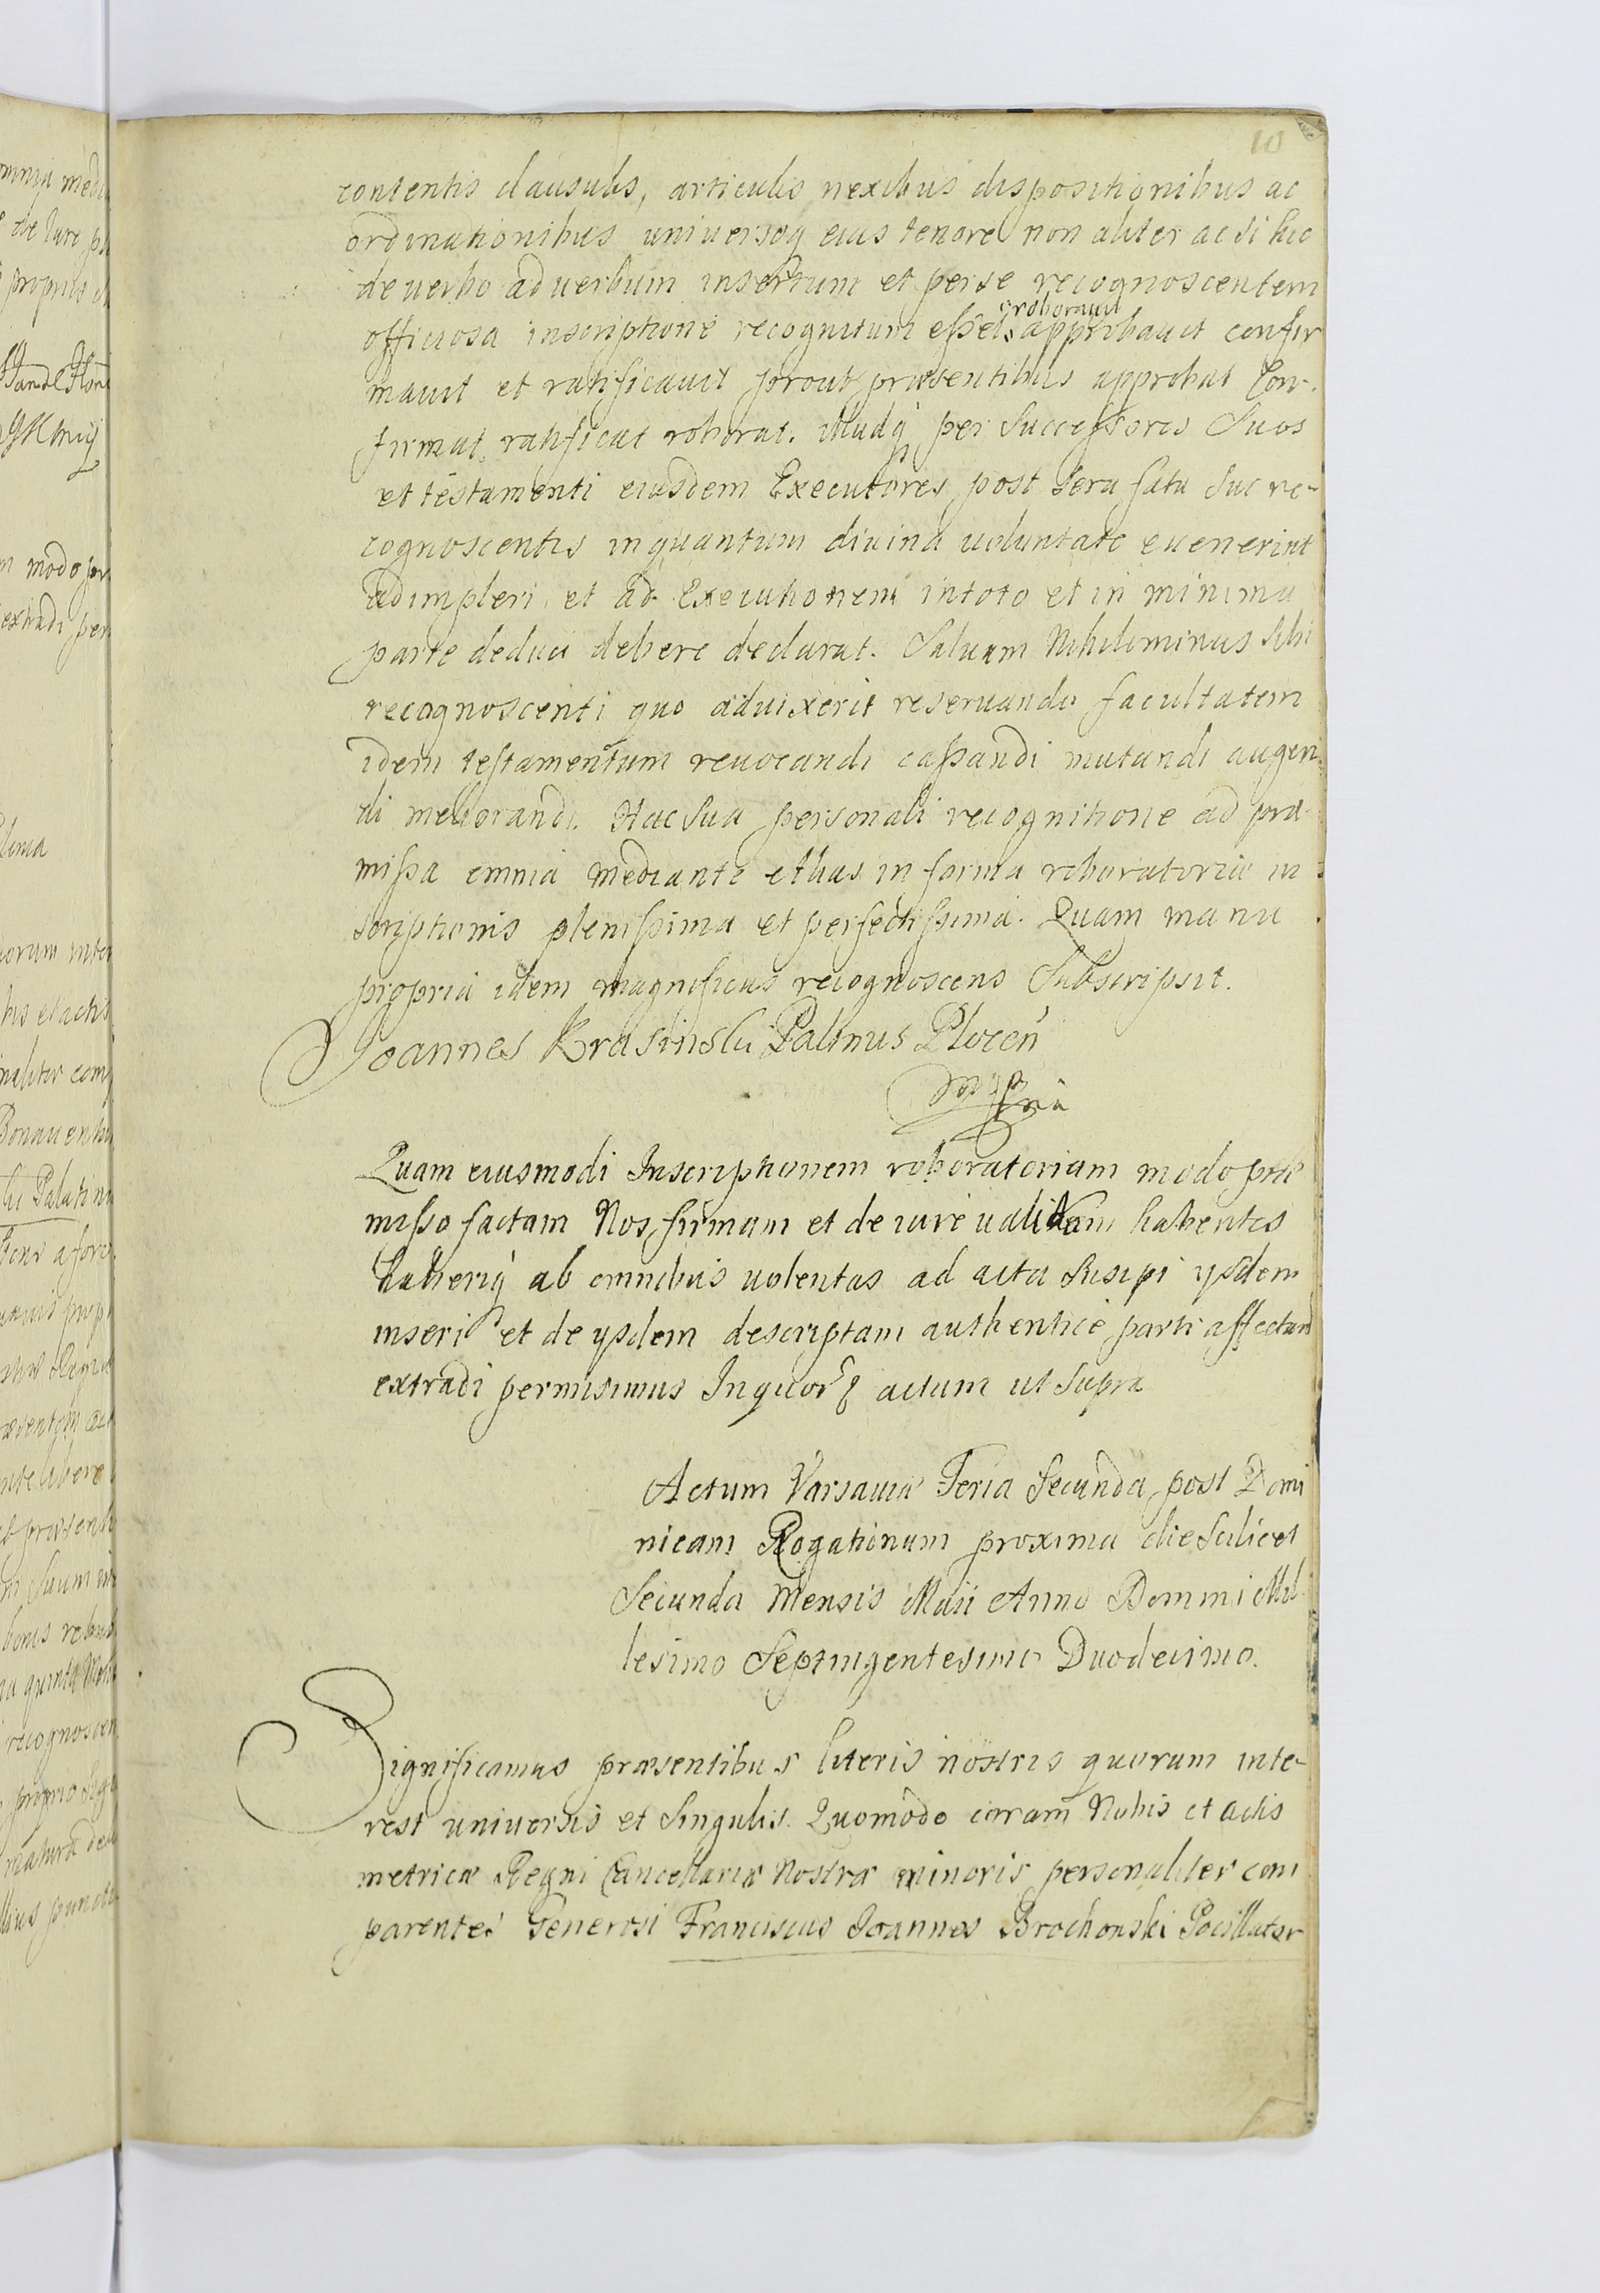 10
contentis clausulis, articulis nexibus dispositionibus ac
ordinationibus universoq eius tenore non aliter ac si hic
de verbo ad verbum insertum et per se recognoscentem
officiosa inscriptione recognitum esset roboravit approbavit confir
mavit et ratificavit prout præsentibus approbat Con-
firmat ratificat roborat. Illudq per Successores Suos
et testamenti eiusdem Executores post sera fata Suæ re-
cognoscentis inquantum divina voluntate evenerint
adimpleri et ad Executionem in toto et in minima
parte deduci debere declarat. Salvam Nihilominus Sibi
recognoscenti quo advixerit reservando facultatem
idem testamentum revocandi cassandi mutandi augen
di meliorandi. Hac sua personali recognitione ad præ
missa omnia mediante et has in forma roboratoriæ in
scriptionis plenissima et perfectissima. Quam manu
propria idem magnificus recognoscens Subscripsit.
Joannes Krasinski Palinus Plocen
mpp
Quam eiusmodi Inscriptionem roboratoriam modo præ
misso factam Nos firmam et de iure validam habentes
haberiq ab omnibus volentes ad acta Suscipi ysdem
inseri et de ysdem descriptam authentice parti affectan
extradi permisimus In quor actum ut Supra
Actum Varsaviæ Feria Secunda post Domi
nicam Rogationum proxima die Scilicet
Secunda Mensis Maii Anno Domini Mil
lesimo Septingentesimo Duodecimo.
Significamus præsentibus literis nostris quorum inte-
rest universis et Singulis. Quomodo coram Nobis et actis
metricæ Regni Cancellariæ Nostræ minoris personaliter com
parentes Generosi Franciscus Joannes Brochonski Pocillator